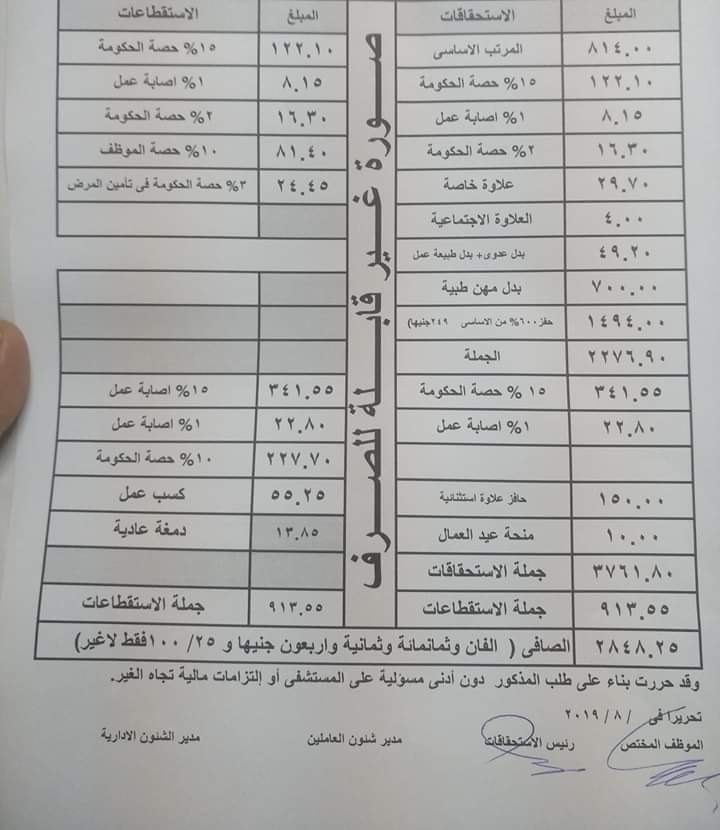 المبلغ الاستحقاقات المبلغ الاستقطاعات
٨١٤.٠٠ المرتب الاساسى ١٢٢.١٠ ١٥% حصة الحكومة
١٢٢.١٠ ١٥% حصة الحكومة ٨.١٥ ١% اصابة عمل
٨.١٥ ١% اصابة عمل ١٦.٣٠ ٢% حصة الحكومة
١٦.٣٠ ٢% حصة الحكومة ٨١.٤٠ ١٠% حصة الموظف
٢٩.٧٠ علاوة خاصة ٢٤.٤٥ ٣% حصة الحكومة فى تأمين المرض
٤.٠٠ العلاوة الاجتماعية
٤٩.٢٠ بدل عدوى+ بدل طبيعة عمل
٧٠٠.٠٠ بدل مهن طبية
١٤٩٤.٠٠ حفز ٦٠٠% من الاساسى ٢٤٩جنيها)
٢٢٧٦.٩٠ الجملة
٣٤١.٥٥ ١٥ % حصة الحكومة ٣٤١.٥٥ ١٥% اصابة عمل
٢٢.٨٠ ١% اصابة عمل ٢٢.٨٠ ١% اصابة عمل
٢٢٧.٧٠ ١٠% حصة الحكومة
١٥٠.٠٠ حافز علاوة استثنائية ٥٥.٢٥ كسب عمل
١٠.٠٠ منحة عيد العمال ١٣.٨٥ دمغة عادية
٣٧٦١.٨٠ جملة الاستحقاقات
٩١٣.٥٥ جملة الاستقطاعات ٩١٣.٥٥ جملة الاستقطاعات
صورة غير قابلة للصرف
٢٨٤٨.٢٥ الصافى ( الفان وثمانمائة وثمانية واربعون جنيها و ٢٥/ ١٠٠فقط لاغير)
وقد حررت بناء على طلب المذكور دون أدنى مسؤلية على المستشفى أو إلتزامات مالية تجاه الغير.
تحريرا فى / ٨ / ٢٠١٩
الموظف المختص رئيس الاستحقاقات مدير شئون العاملين مدير الشئون الادارية